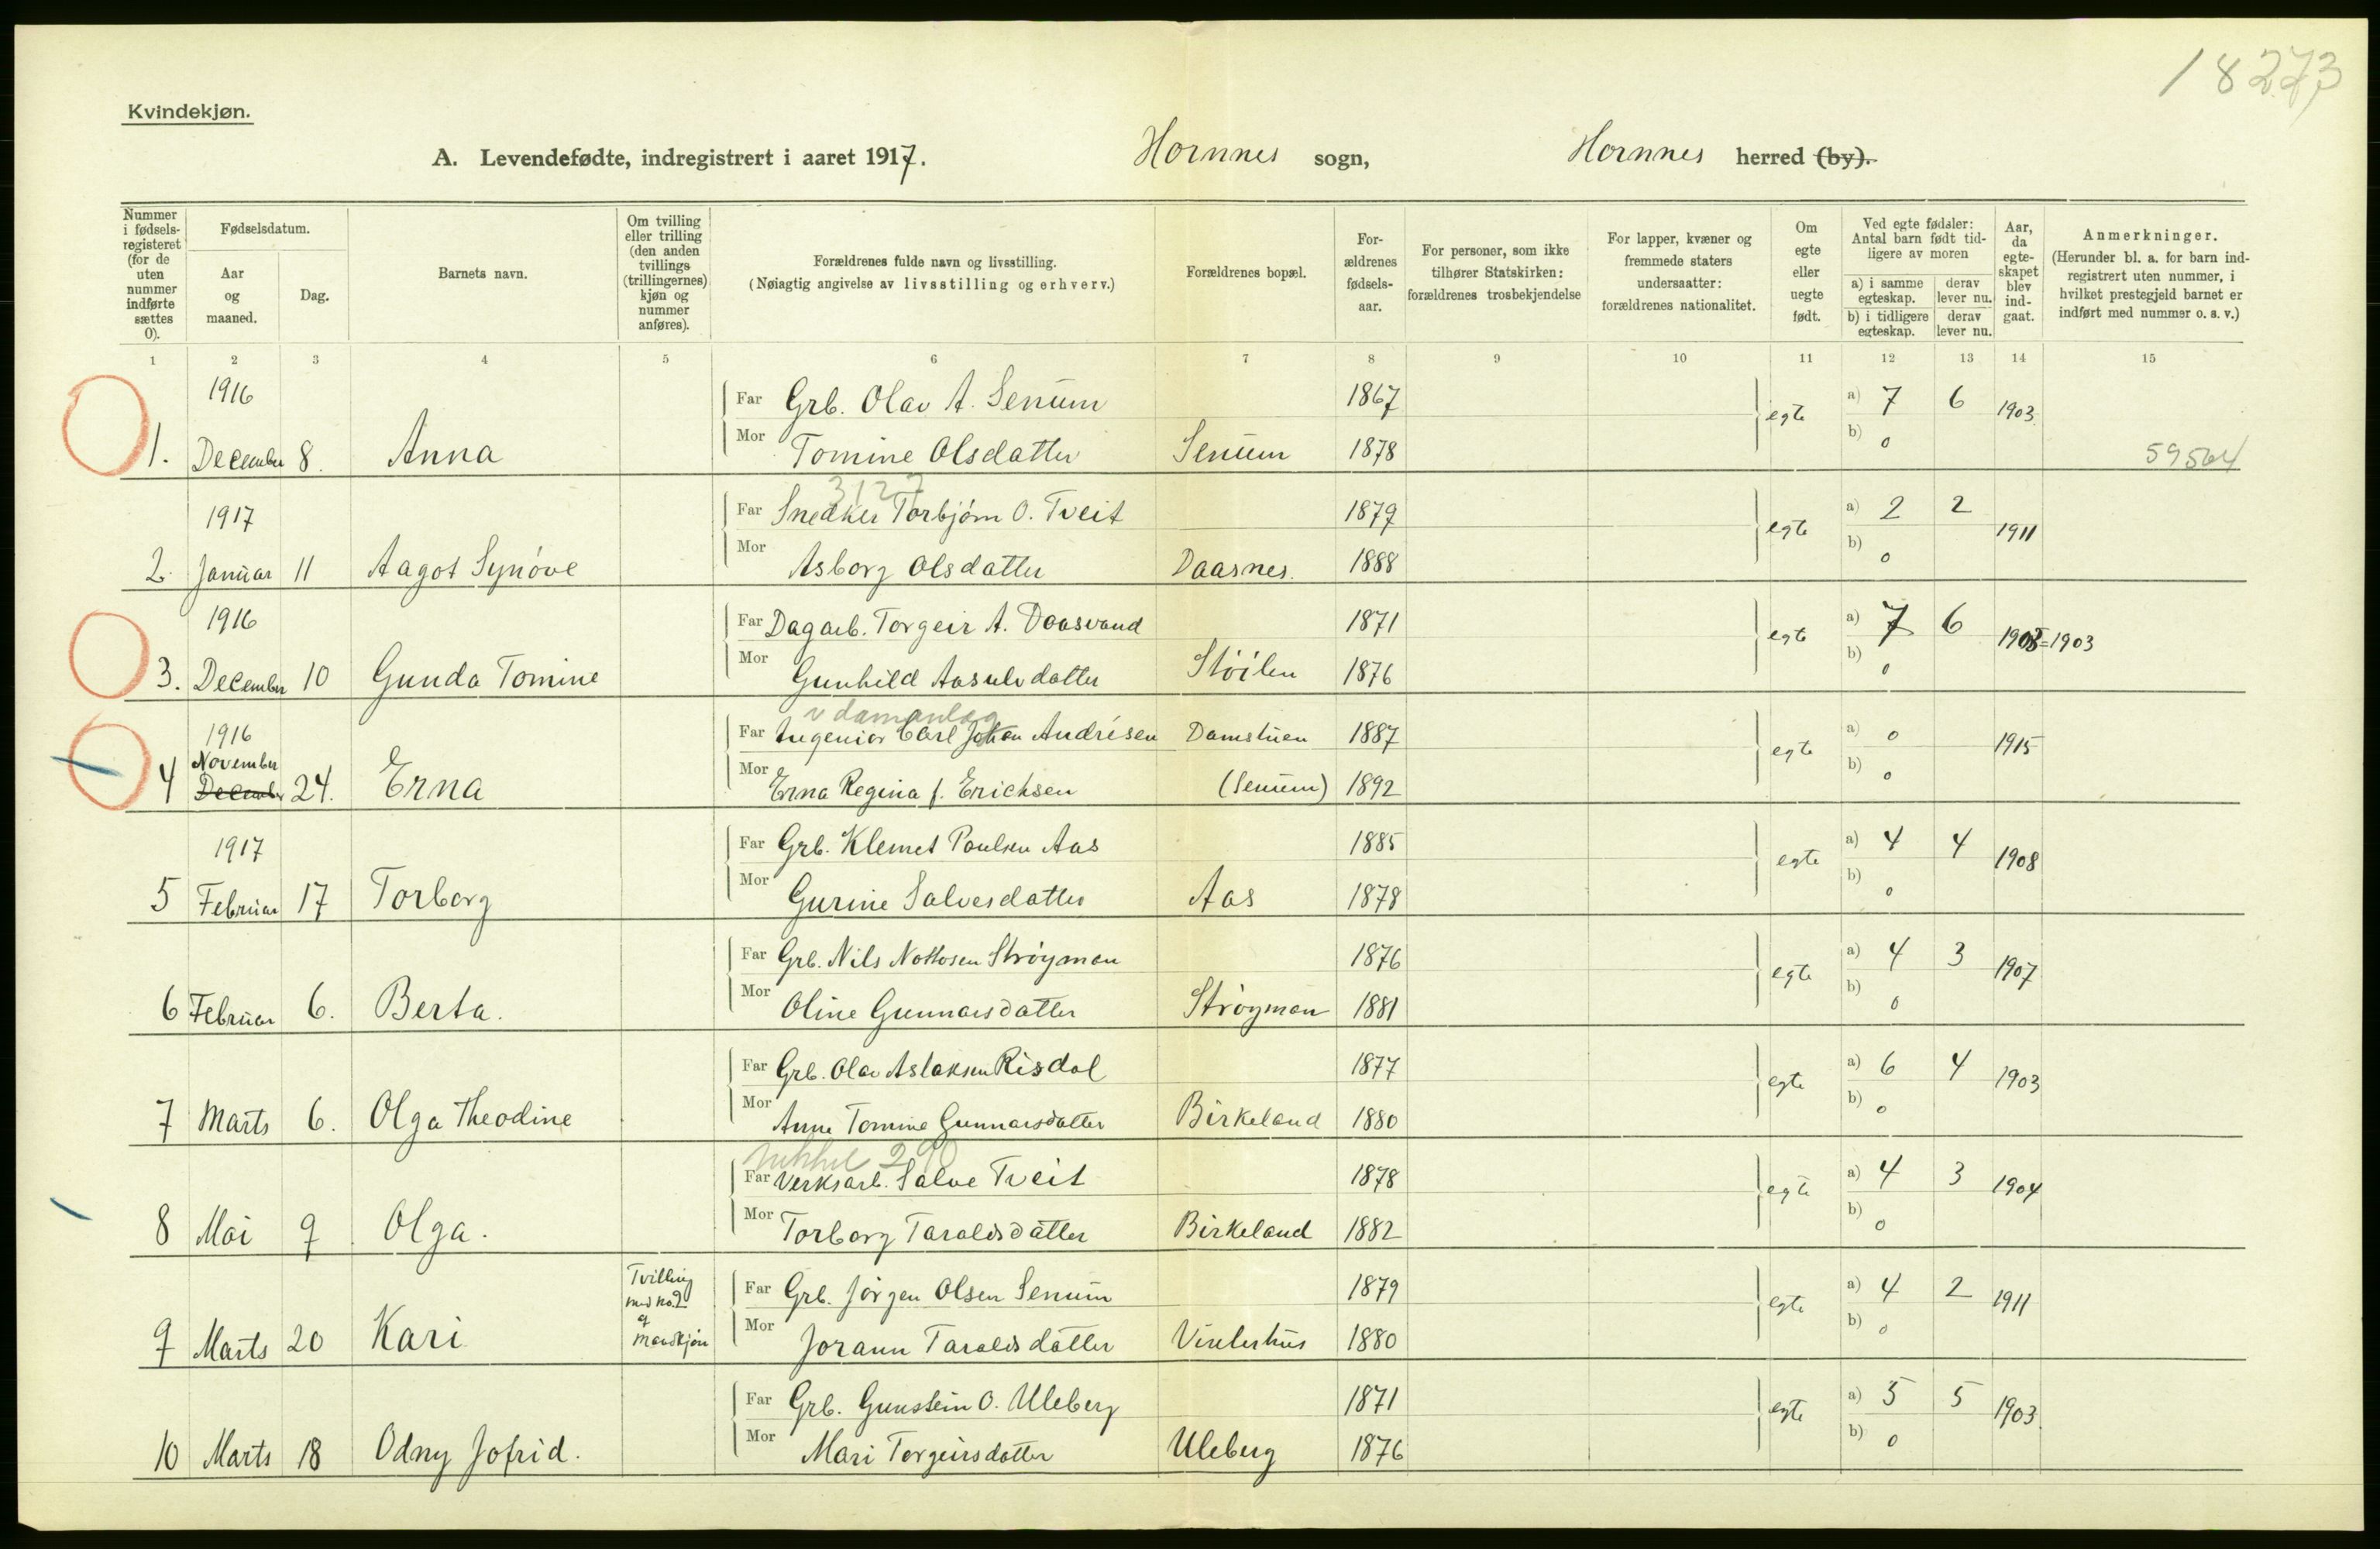 18273
Kvindekjøn.
A. Levendefødte, indregistrert i aaret 1917. Hornnes sogn, Hornnes herred (by).
Nummer i fødsels-registeret (for de uten nummer indførte sættes 0).
Fødselsdatum.
Aar og maaned.
Dag.
Barnets navn.
Om tvilling eller trilling (den anden tvillings (trillingernes) kjøn og nummer anføres).
Forældrenes fulde navn og livsstilling.
(Nøiagtig angivelse av livsstilling og erhverv.)
Forældrenes bopæl.
For-ældrenes fødsels-aar.
For personer, som ikke tilhører Statskirken: forældrenes trosbekjendelse
For lapper, kvæner og fremmede staters undersaatter: forældrenes nationalitet.
Om egte eller uegte født.
Ved egte fødsler: Antal barn født tid-ligere av moren
a) i samme egteskap. derav lever nu.
b) i tidligere egteskap. derav lever nu.
Aar, da egte-skapet blev ind-gaat.
Anmerkninger.
(Herunder bl. a. for barn ind-registrert uten nummer, i hvilket prestegjeld barnet er indført med nummer o. s. v.)
1 2 3 4 5 6 7 8 9 10 11 12 13 14 15
1916 Far Grb. Olav A. Senum 1867 egte a) 7 6 1903
1. December 8. Anna Mor Tomine Olsdatter Senum 1878 b) 0 59564
3127
1917 Far Snedker Torbjörn O. Tveit 1879 egte a) 2 2 1911
2. Januar 11 Aagot Synöve Mor Asborg Olsdatter Daasnes. 1888 b) 0
1916 Far Dagarb. Torgeir A. Daasvand 1871 egte a) 7 6 1903
3. December 10 Gunda Tomine Mor Gunhild Aasulvdatter Stöilen 1876 b) 0
v damanlæg
1916 Far Ingeniör Carl Johan Andrésen Damstuen 1887 egte a) 0 1915
November
4 December 24. Erna Mor Erna Regina f. Erichsen (Senum) 1892 b) 0
1917 Far Grb. Klemet Paulsen Aas 1885 egte a) 4 4 1908
5 Februar 17 Torborg Mor Gurine Salvesdatter Aas 1878 b) 0
Far Grb. Nils Nottosen Ströyman 1876 egte a) 4 3 1907
6 Februar 6. Berta. Mor Oline Gunnarsdatter Ströyman 1881 b) 0
Far Grb. Olav Aslaksen Risdal 1877 egte a) 6 4 1903
7 Marts 6. Olga Theodine Mor Anne Tomine Gunnarsdatter Birkeland 1880 b) 0
nikkel 290
Far Verksarb. Salve Tveit 1878 egte a) 4 3 1904
8 Mai 9 Olga. Mor Torborg Taraldsdatter Birkeland 1882 b) 0
Tvilling med no. 2 af Mandkjön
Far Grb. Jörgen Olsen Senum 1879 egte a) 4 2 1911
9 Marts 20 Kari Mor Jorann Taraldsdatter Vinterhus 1880 b) 0
Far Grb. Gunstein O. Uleberg 1871 egte a) 5 5 1903
10 Marts 18 Odny Jofrid. Mor Mari Torgeirsdatter Uleberg 1876 b) 0